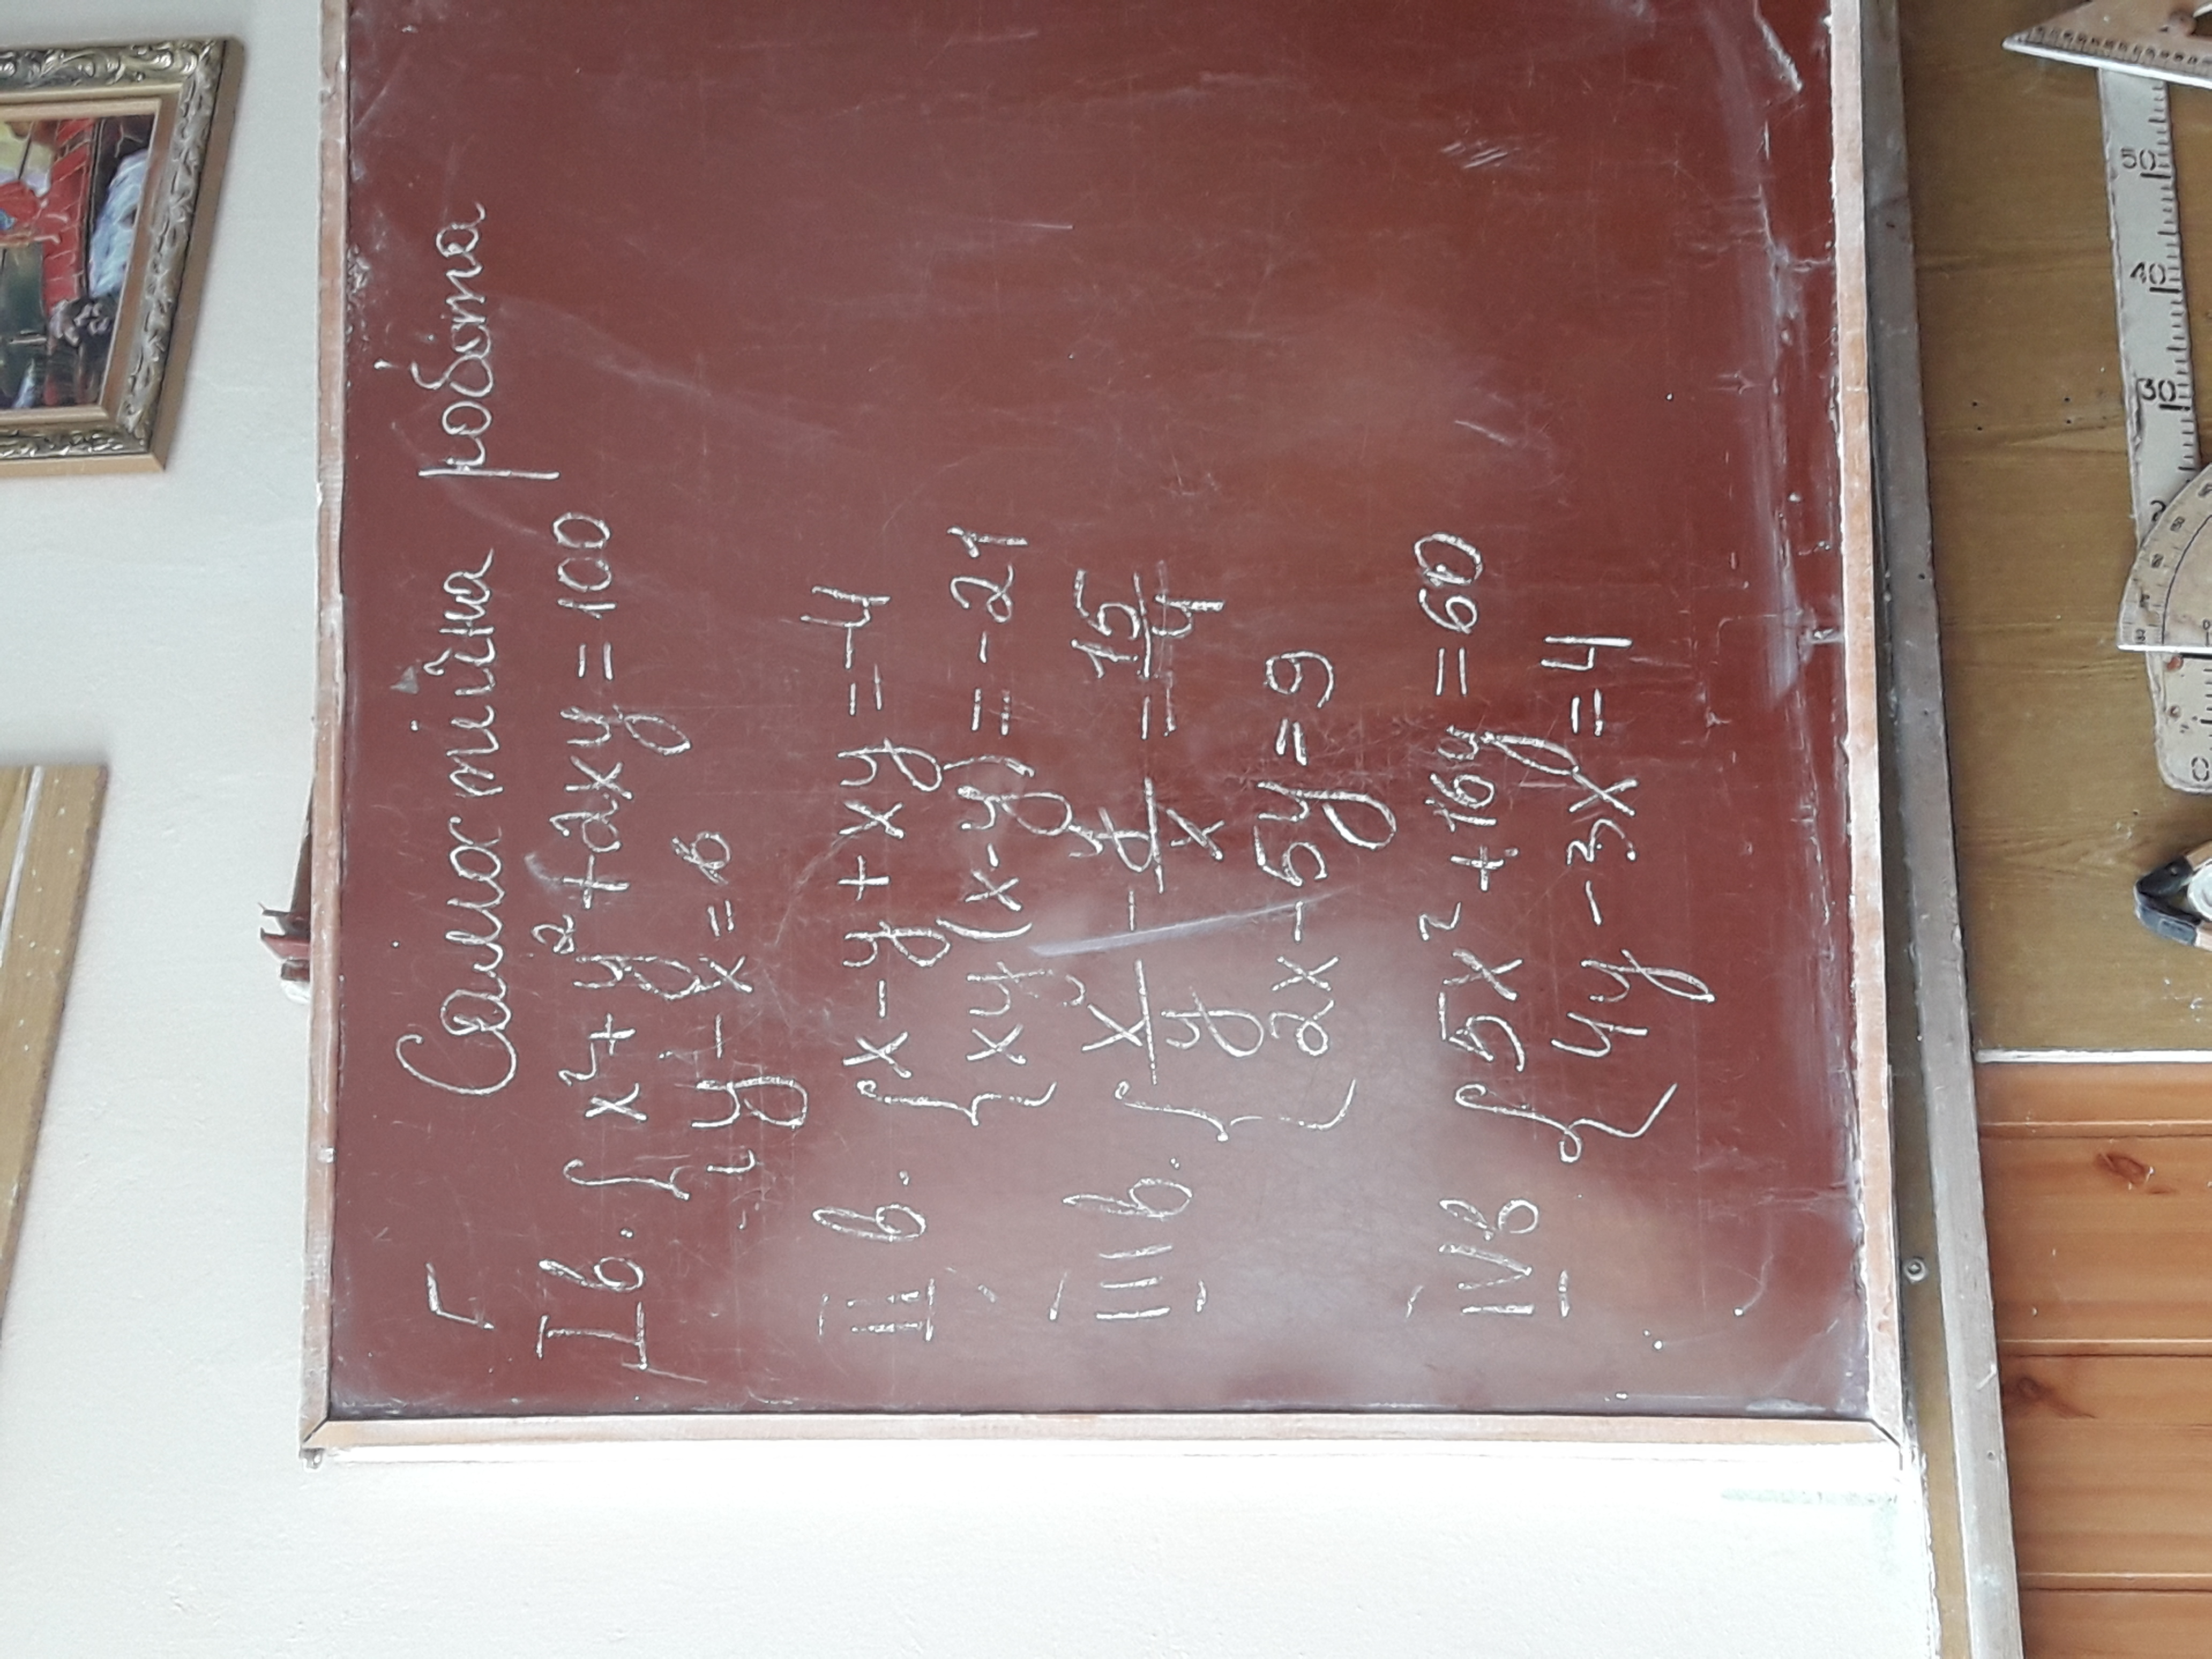 Самостійна робота
I в. { x² + y² + 2xy = 100
y - x = 6
II в. { x - y + xy = -4
xy (x-y) = -21
III в. { x/y - y/x = 15/4
2x - 5y = 9
IV в { 5x² + 16y = 60
4y - 3x = 4
50
40
30
2
0